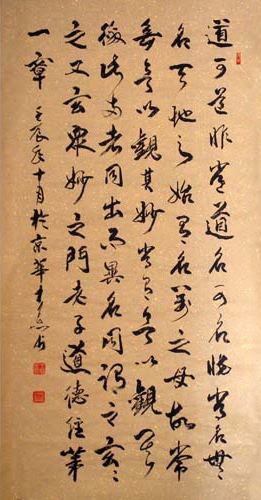 道可道非常道名可名非常名無
名天地之始有名萬之母故常
無欲以觀其妙常有欲以觀其
徼此兩者同出而異名同謂之玄〻
之又玄眾妙之門老子道德經第
一章 壬辰年十月於京華